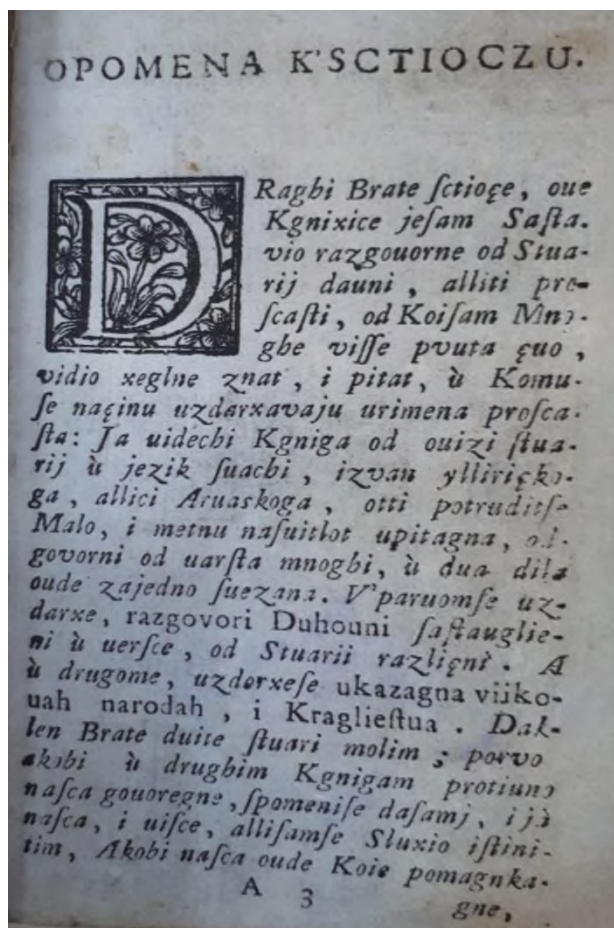 OPOMENA K'SCTIOCZU.
DRaghi Brate ſctioçe, oue
Kgnixice jeſam Saſta.
vio razgouorne od Stua-
rij dauni, alliti pro-
ſcaſti, od Koiſam Mno-
ghe viſſe pvuta çuo,
vidio xeglne znat, i pitat, ù Komu-
ſe naçinu uzdarxavaju urimena proſca-
ſta: Ja uidechi Kgniga od ouizi ſtua-
rij ù jezik ſuachi, izvan ylliriçko-
ga, allici Aruaskoga, otti potruditſe
Malo, i metnu naſuitlot upitagna, od-
govorni od uarſta mnoghi, ù dua dila
oude zajedno ſuezana. V'paruomſe uz-
darxe, razgovori Duhouni ſaſtauglie-
ni ù uerſce, od Stuarii razliçni. A
ù drugome, uzdorxeſe ukazagna vijko-
uah narodah, i Kraglieſtua. Dak-
len Brate duite ſtuari molim; porvo
akobi ù drughim Kgnigam protiuno
naſca gouoregne, ſpomeniſe daſamj, i jà
naſca, i uiſce, alliſamſe Sluxio iſtini-
tim, Akobi naſca oude Koie pomagnka-
A 3
gne,